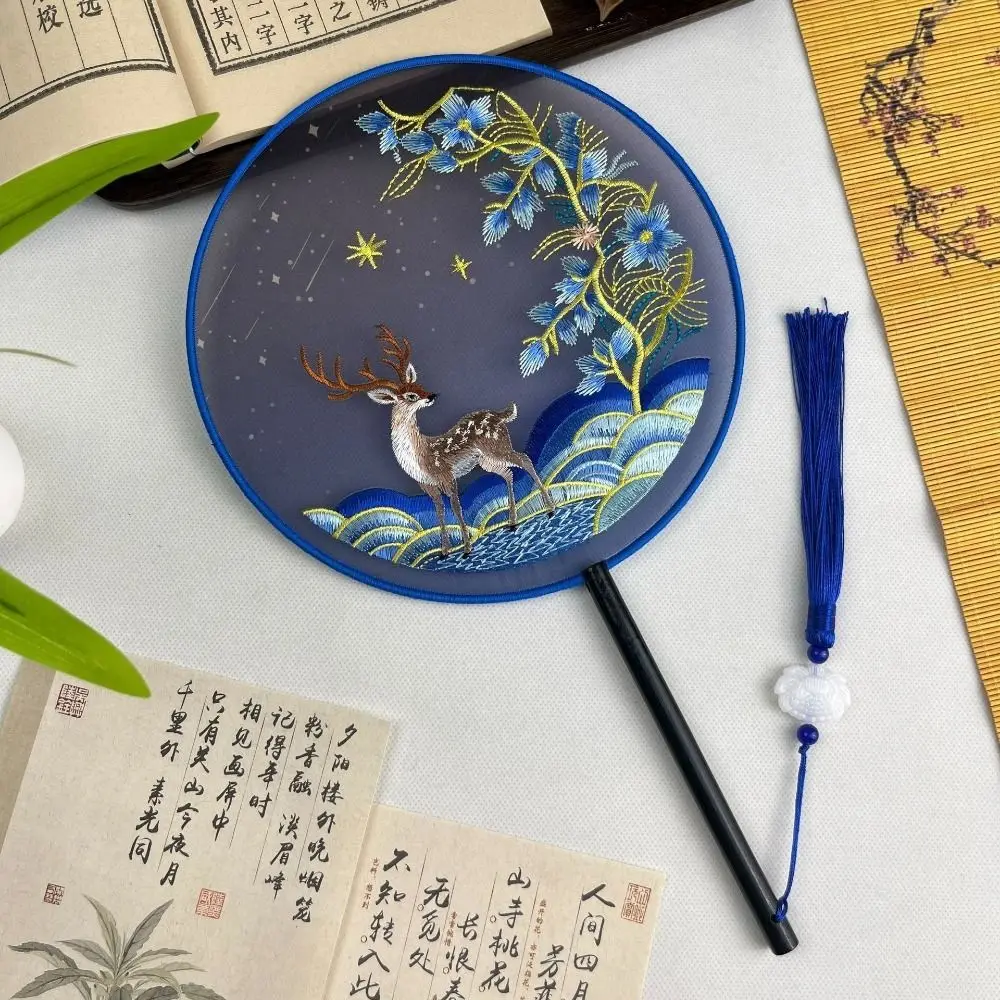 之
一字
二字
其内
选
校
夕阳楼外晚烟笼
粉香融 淡眉峰
记得年时
相见画屏中
只有关山今夜月
千里外 素光同
人间四月
芳菲
山寺桃花
长恨春
无觅处
不知转入此